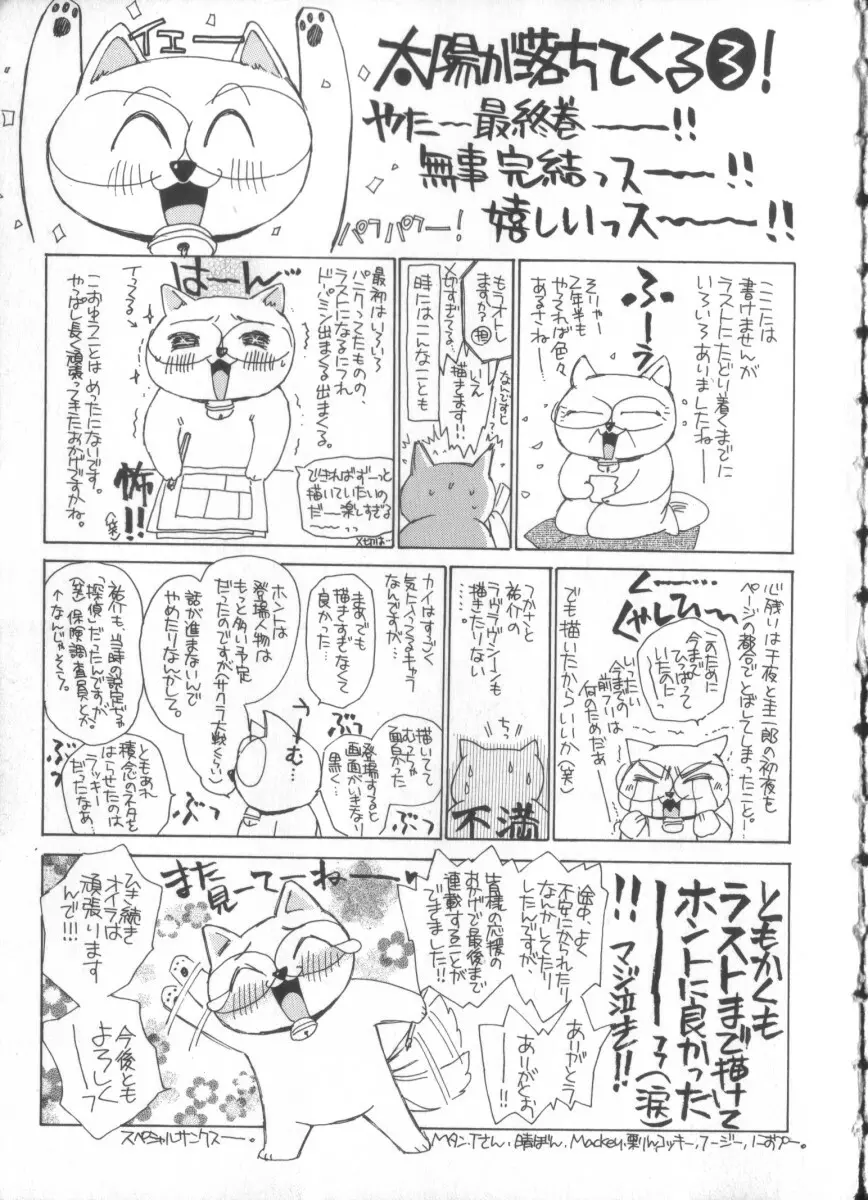 イエー
太陽が落ちてくる③!
やたー最終巻ーー!!
無事完結っスーー!!
嬉しいっスーーー!!
パフパフー!
ここには
書けませんが
ラストにたどり着くまでに
いろいろありましたねー
ふーぅ
そりゃー
2年半も
やれば色々
あるさねー
もうオトし
ますか?
担
〆切すぎてる…
なんですとーー?
いえ
描きます!!
時にはこんなことも
はーん
最初はいろいろ
パニクってたものの、
ラストになるにつれ
ドパミン出まくる出まくる。
イってる→
こおゆうことはめったにないです。
やっぱし長く頑張ってきたおかげですかね。
怖!!
(笑)
できればずーっと
描いていたいの
だー楽しすぎる
心残りは千夜と圭一郎の初夜を
ページの都合でとばしてしまったこと!
くー…
くやしひー
このために
今まで
ひっぱって
いたのにっ
いったい
今までの
前フリは
何のためだぁ
でも描いたからいいか(笑)
つかさと
祐介の
ラヴラヴシーンも
描きたりない
……。
ちっ
不満
カイはすごく
気に入ってるキャラ
なんですが…
まあでも
描きすぎなくて
良かった…
描いてて
むっちゃ
面白かった
登場すると
画面がいきなり
黒く…
ホントは
登場人物は
もっと多い予定
だったのですが(サクラ大戦くらい)
話が進まないんで
やめたりなんかして。
うーむ…
ぶつ
ぶつ
ぶつ
祐介も、当時の設定じゃ
「探偵」だったんですが
(笑)保険調査員とか。
↑なんじゃそら。
ともあれ
積念のネタを
はらせたのは
ラッキー
だったなぁ…
ともかくも
ラストまで描けて
ホントに良かった
ーーっっ(涙)
!!マジ泣き!!
途中、よく
不安にかられたり
なんかしてたり
したんですが、
皆様の応援の
おかげで最後まで
連載することが
できました!!
ありがとう
ーー!!
ありがとお
ーー!!
また
見ーてーねー
ひき続き
オイラは
頑張ります
んで!!!
今後とも
よろしく
ーーっ
スペシャルサンクスー。
Mタン、Tさん、晴ぼん、Mackey、栗りん、コッキー、フージー、